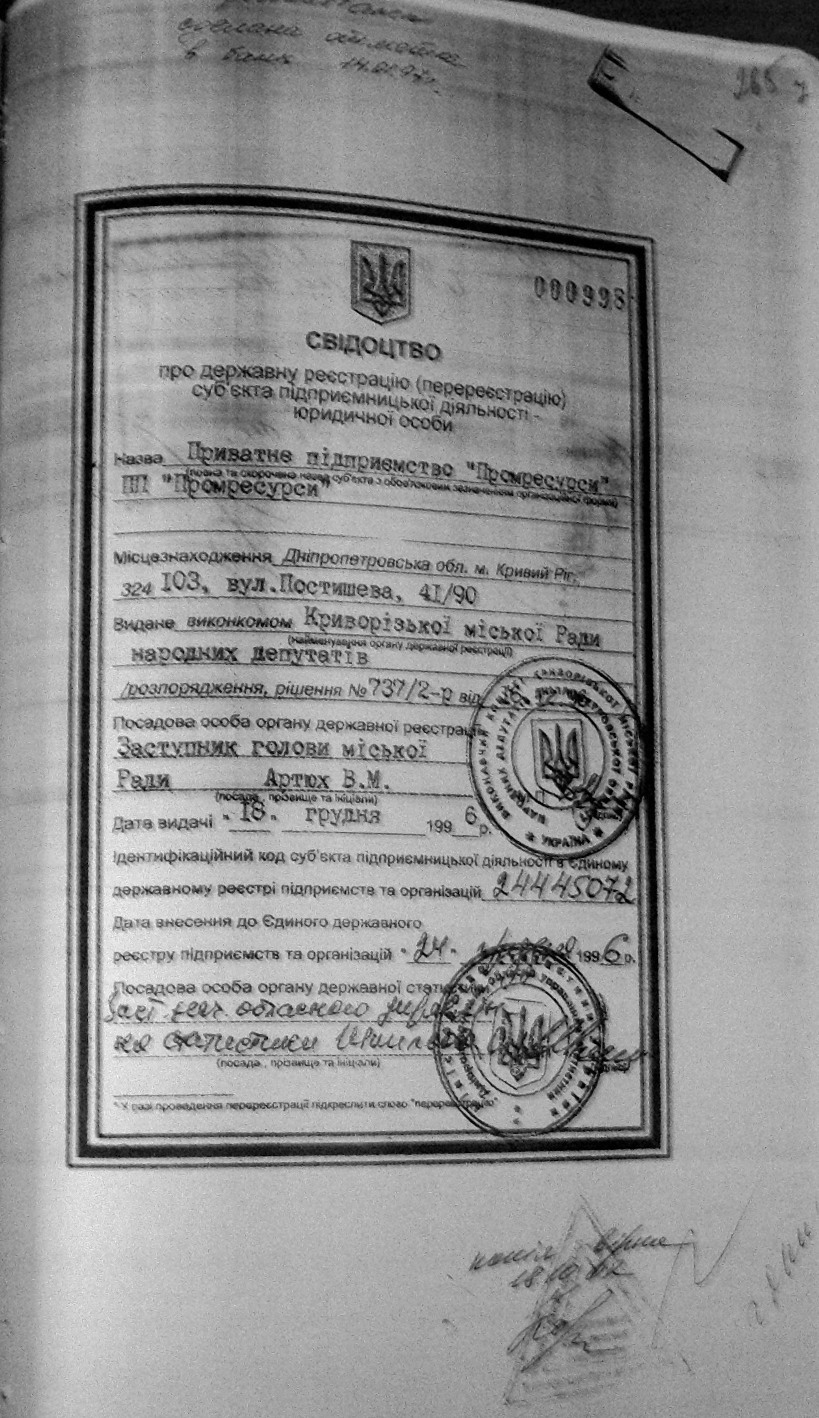 сделана отметка
в банк 14.01.97г.
265
000998
СВІДОЦТВО
про державну реєстрацію (перереєстрацію)
суб'єкта підприємницької діяльності -
юридичної особи
Назва Приватне підприємство "Промресурси"
(повна та скорочена назва суб'єкта з обов'язковим зазначенням організаційної форми)
ПП "Промресурси"
Місцезнаходження Дніпропетровська обл. м. Кривий Ріг,
324 103, вул.Постишева, 41/90
Видане виконкомом Криворізької міської Ради
(найменування органу державної реєстрації)
народних депутатів
/розпорядження, рішення №737/2-р від
Посадова особа органу державної реєстрації
Заступник голови міської
Ради Артюх В.М.
(посада, прізвище та ініціали)
Дата видачі "18" грудня 1996р.
Ідентифікаційний код суб'єкта підприємницької діяльності в Єдиному
державному реєстрі підприємств та організацій 24445072
Дата внесення до Єдиного державного
реєстру підприємств та організацій "24" 1996р.
Посадова особа органу державної статистики
Заст нач. обласного управлін
ня статистики
(посада, прізвище та ініціали)
*У разі проведення перереєстрації підкреслити слово "перереєстрацію"
УКРАЇНА
копія вірна
18.10.02